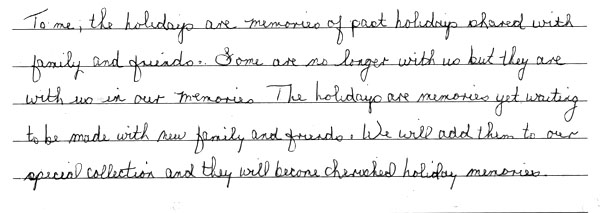 To me, the holidays are memories of past holidays shared with
family and friends. Some are no longer with us but they are
with us in our memories The holidays are memories yet waiting
to be made with new family and friends. We will add them to our
special collection and they will become cherished holiday memories.